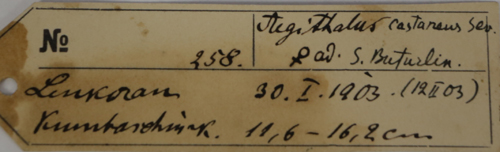 № 258. Aegithalus castaneus Sev.
♀ ad. S. Buturlin.
Lenkoran 30. I. 1903. (12 II 03)
Kumbaschinsk. 11,6 – 16,2 cm